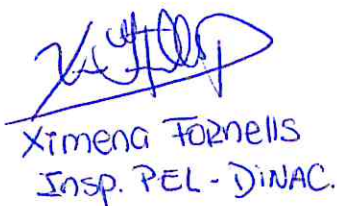 Ximena Fornells
Insp. PEL - DiNAC.